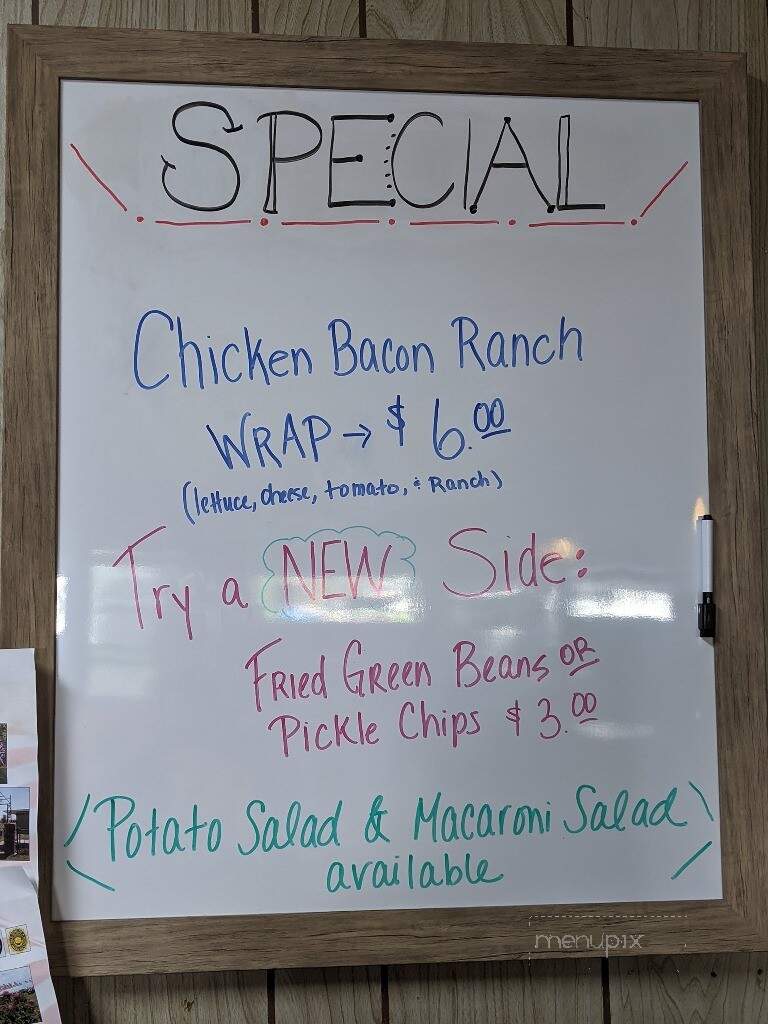 SPECIAL
Chicken Bacon Ranch
WRAP → $6.00
(lettuce, cheese, tomato, & Ranch)
Try a NEW Side:
Fried Green Beans OR
Pickle Chips $3.00
Potato Salad & Macaroni Salad
available
menupix